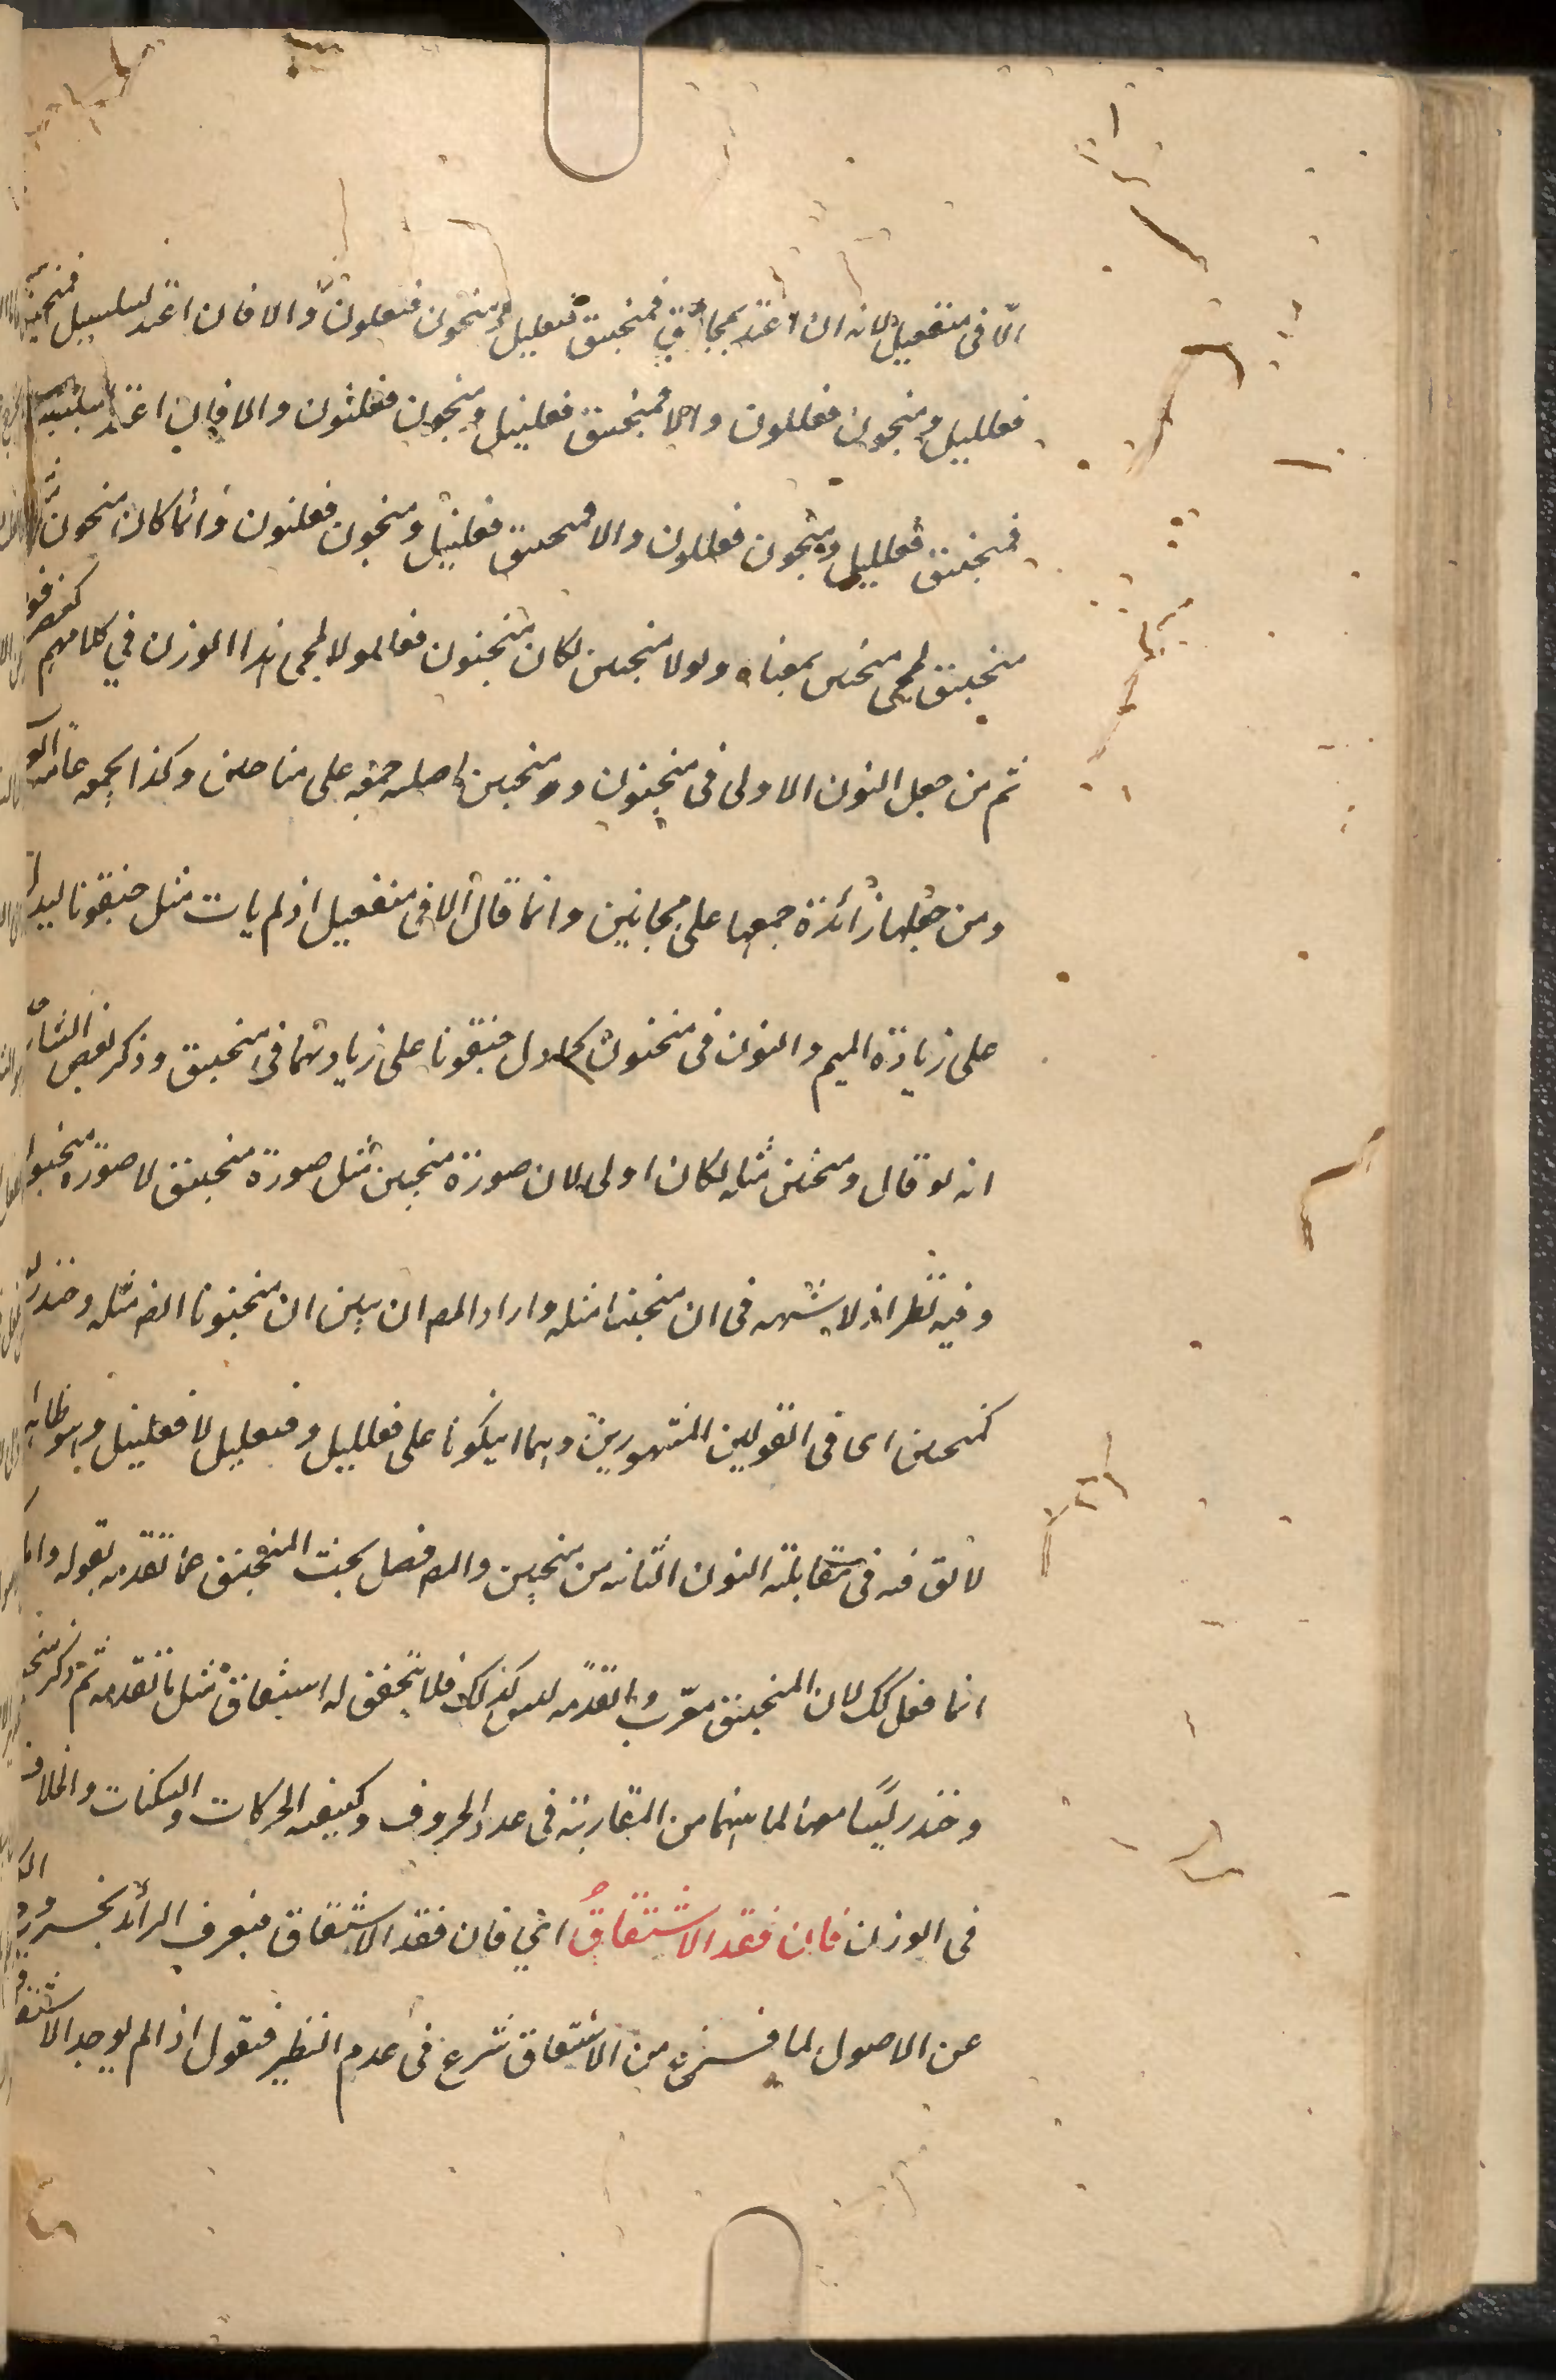 الّا فى منفعيل لانه ان اعتد بمجانيق فمنجنيق فنعليل ومنجنون فنعلول والا فان اعتد بسلسبيل فمنجنيق
فعلليل ومنجنون فعللول والا فمنجنيق فعلنيل ومنجنون فعلنول والا فان اعتد
فمنجنيق فعلليل ومنجنون فعللول والا فمنجنيق فعلنيل ومنجنون فعلنول وانما كان منجنون
منجنيق لمجى منجنين بمعناه ولولا منجنين لكان منجنون فعللول لمجى هذا الوزن في كلامهم كعضرفوط
ثم من جعل النون الاولى فى منجنون ومنجنين اصليه جمعه على مناجين وكذا يجمعه عامة
ومن جعلها زائدة جمعها على مجانين وانما قال الا فى منفعيل اذ لم يات مثل جنقونا ليدل
على زيادة الميم والنون فى منجنون كما دل جنقونا على زيادتهما فى منجنيق وذكر بعض
انه لو قال ومنجنين مثله لكان اولى لان صورة منجنين مثل صورة منجنيق لا صورة منجنون
وفيه نظر اذ لا شبهه فى ان منجنينا مثله واراد المص ان يبين ان منجنونا ايض مثله وخندريس
كمنجنين اى فى القولين المشهورين وهما ان يكونا على فعلليل وفنعليل لا فعلنيل وهو ظاهر اذ
لا نون فيه فى مقابلة النون الثانية من منجنين والمص فصل بحث المنجنيق عما تقدمه بقوله واما
انما فعل ذلك لان المنجنيق معرّب وما تقدّمه ليس كذلك فلا يتحقق له اشتقاق مثل ما تقدمه ثم ذكر
وخندريسا معه لما بينهما من المقاربة فى عدد الحروف وكيفيه الحركات والسكنات والخلاف
فى الوزن فان فقد الاشتقاقُ اي فان فقد الاشتقاق فيعرف الزائد بخروجه
عن الاصول لما فرغ من الاشتقاق شرع فى عدم النظير فنقول اذا لم يوجد الاشتقاق